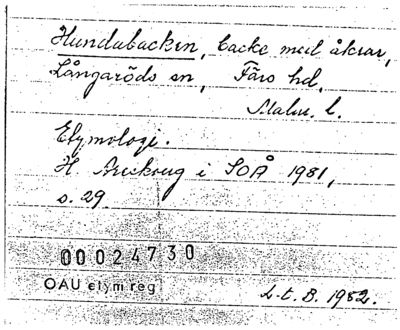 Hundabacken, backe med åkrar,
Långaröds sn, Färs hd,
Malm. l.
Etymologi.
H. i SOÅ 1981,
s. 29.
00024730
OAU etym reg
L.t.B. 1982.